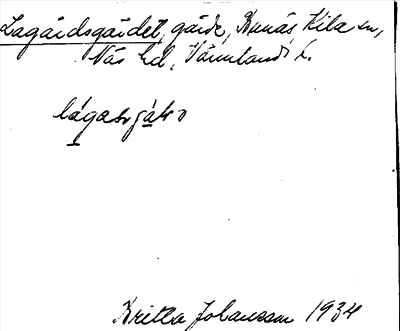 Lagårdsgärdet, gärde, Runäs Kila sn,
Näs hd, Värmlands l.
Britta Johansson 1934